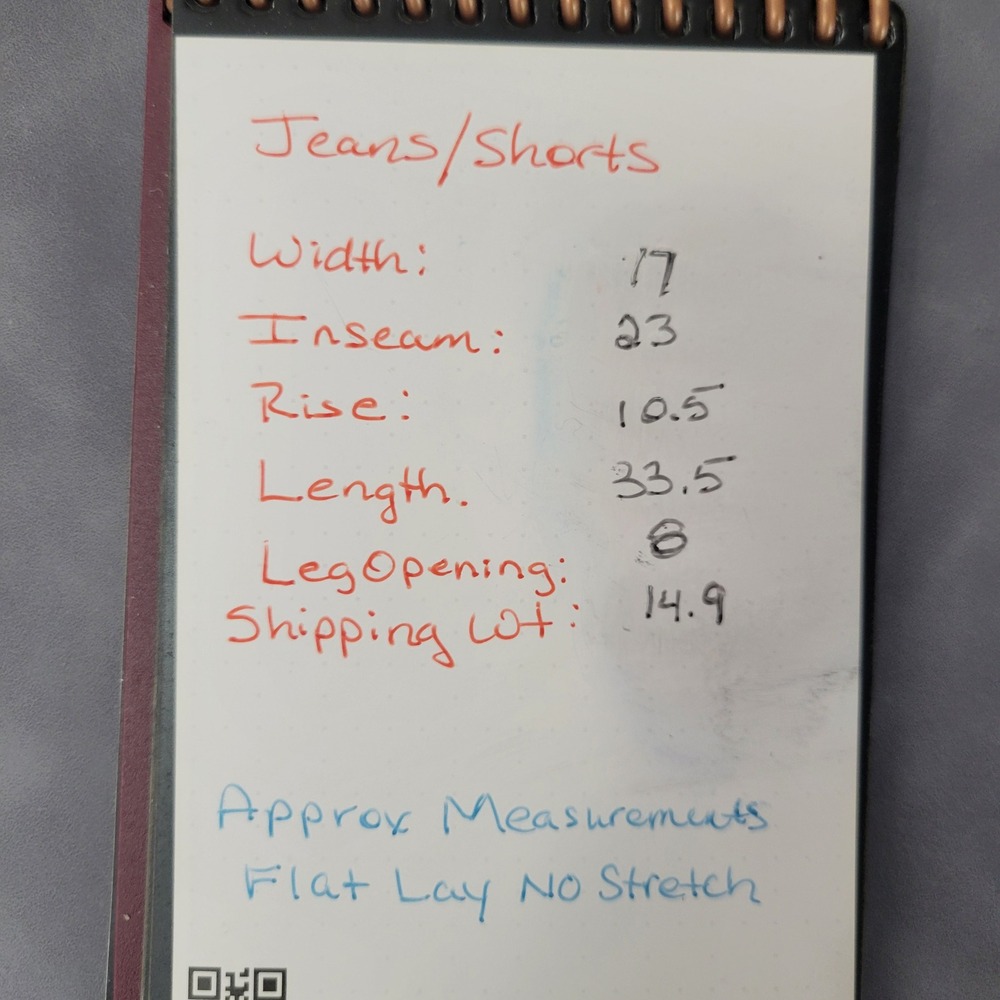 Jeans/Shorts
Width: 17
Inseam: 23
Rise: 10.5
Length. 33.5
Leg Opening: 8
Shipping Wt: 14.9
Approx Measurements
Flat Lay No Stretch